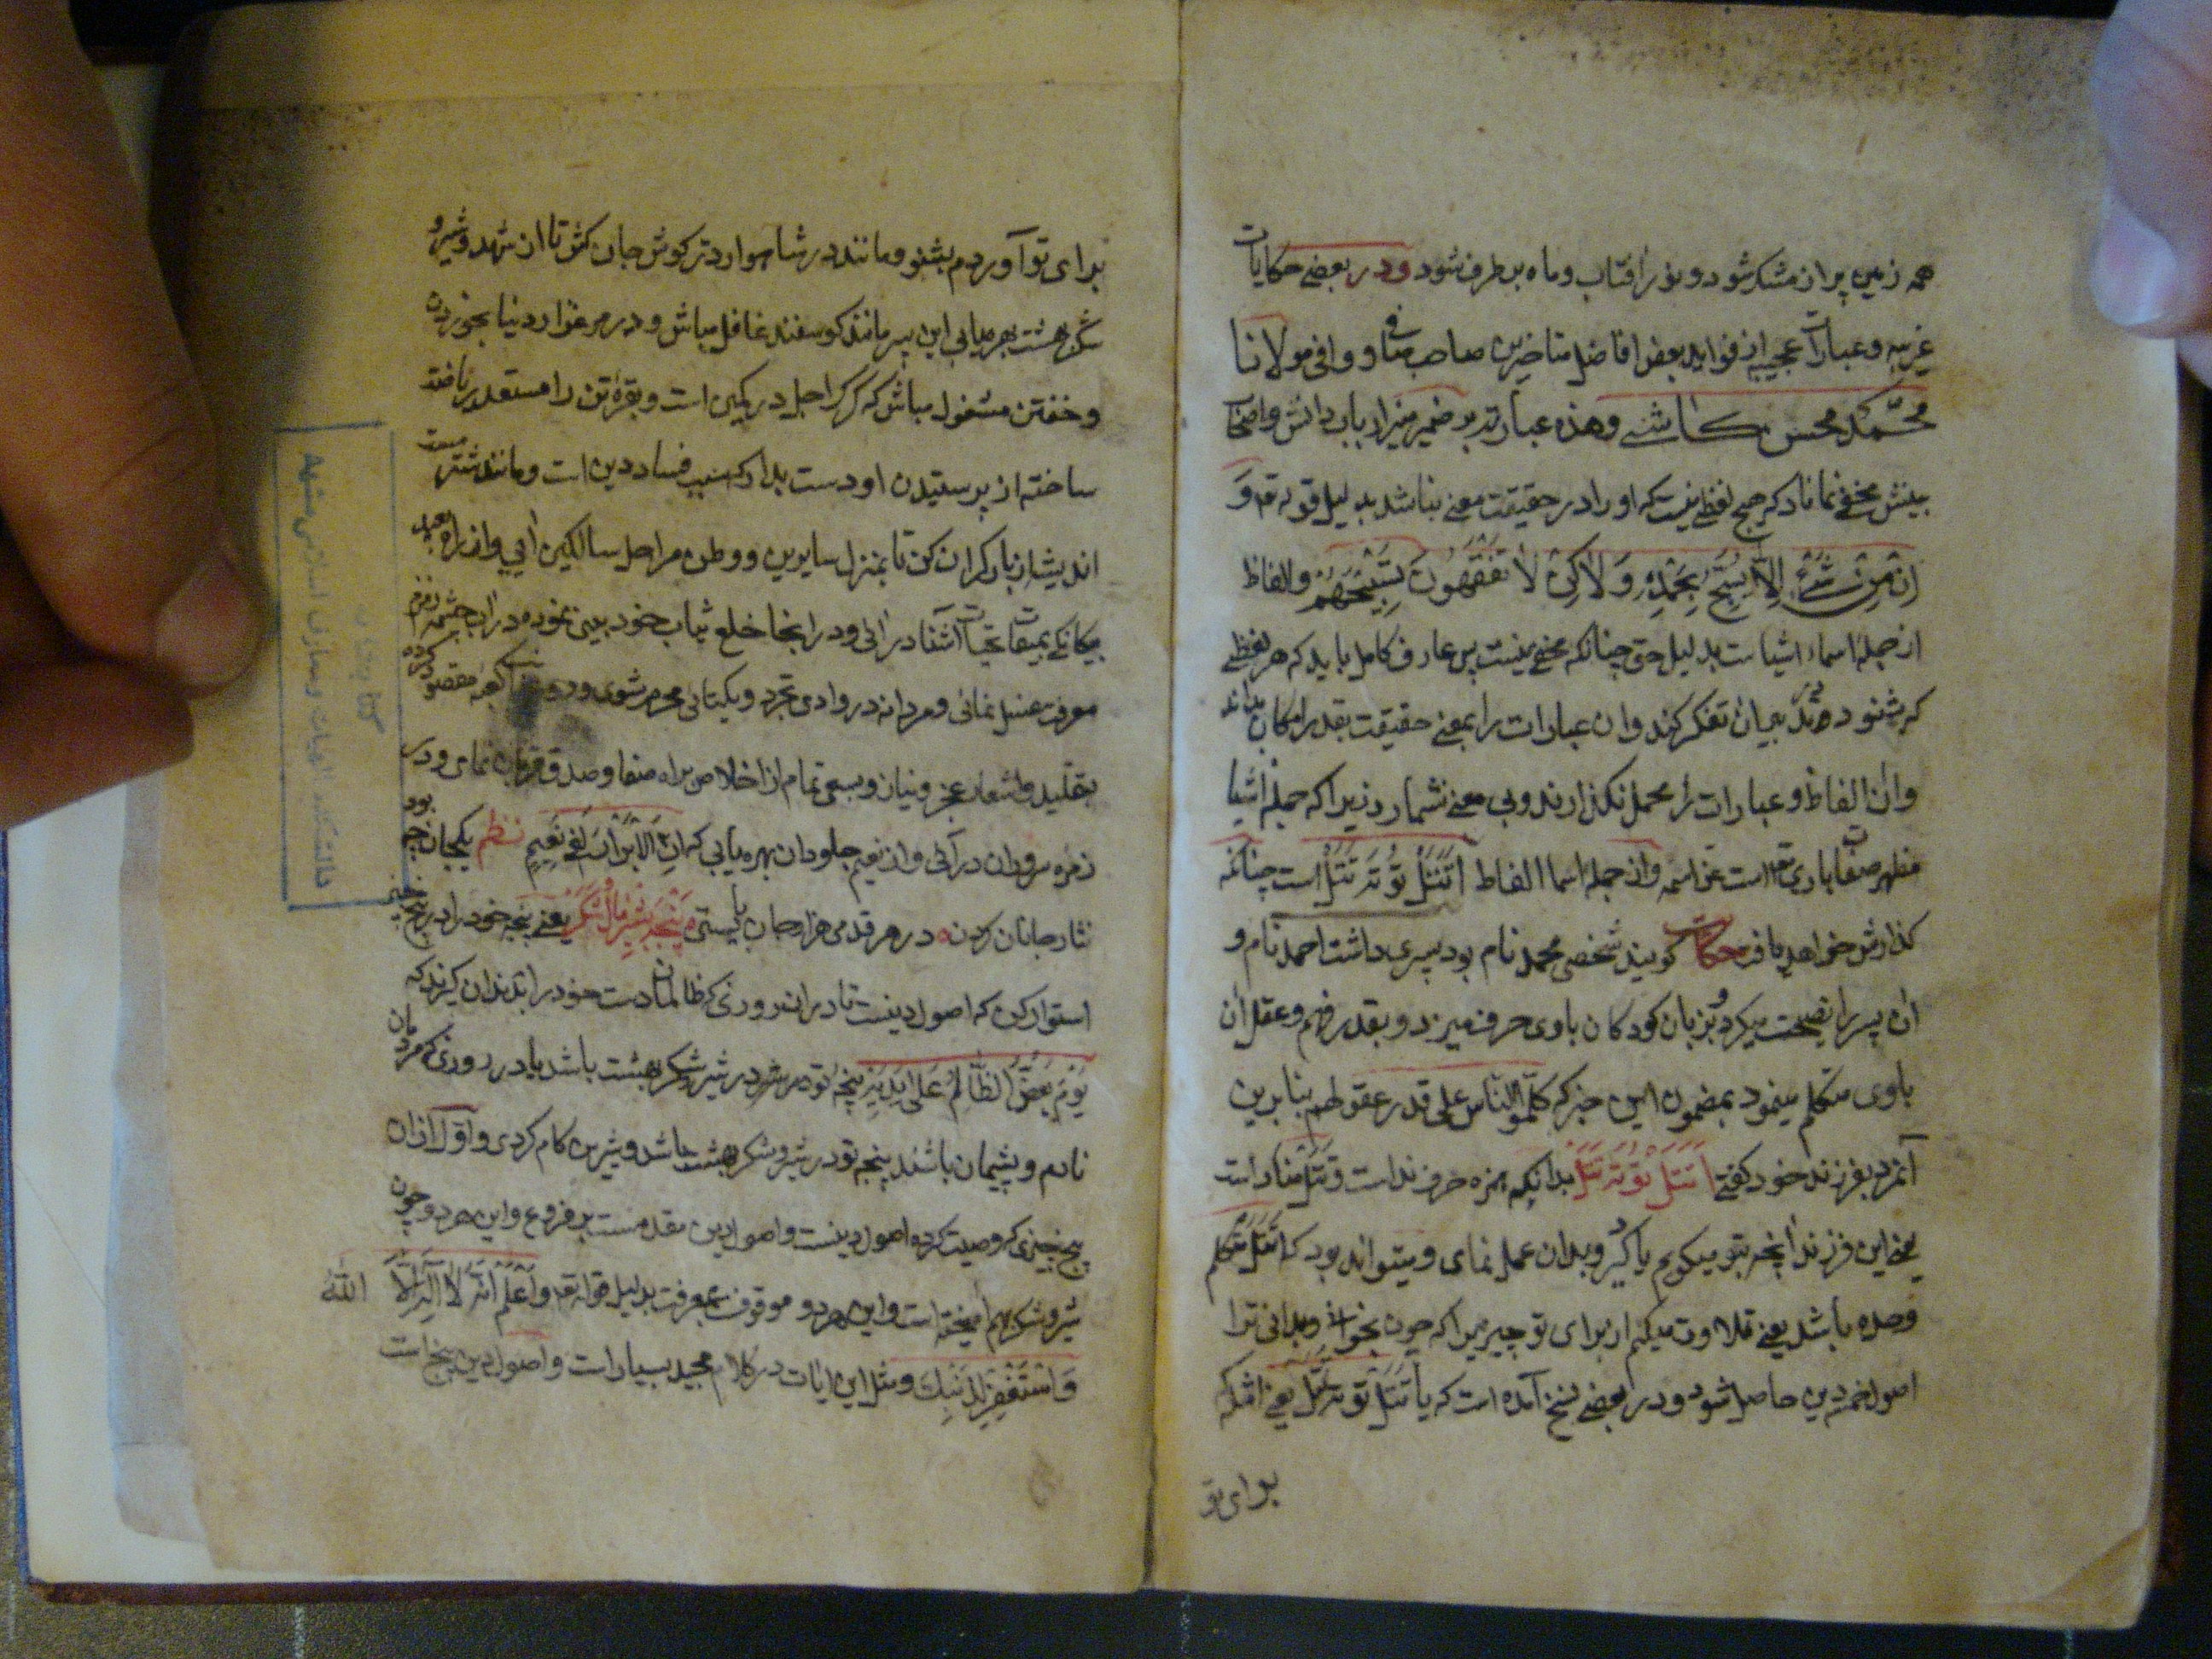 همه زمین پر از مشک شود و نور آفتاب و ماه برطرف شود و در بعضی حکایات
غریبه و عبارات عجیبه از فواید بعض افاضل متاخرین صاحب صافی و وافی مولانا
محمد محسن کاشی وهذه عبارته بر ضمیر منیر ارباب دانش و اصحاب
بینش مخفی نماناد که هیچ لفظی نیست که او را در حقیقت معنی نباشد بدلیل قوله تعه وَ
اِنْ مِنْ شَیْءٍ اِلّا یُسَبِّحُ بِحَمْدِهِ وَلٰکِنْ لا تَفْقَهُونَ تَسْبِیحَهُمْ والفاظ
از جمله اسماء اشیاست بدلیل حق چنانکه مخفی نیست پس عارف کامل باید که هر لفظی
که شنود در بیان تفکر کند و ان عبارات را بمعنی حقیقت بقدر امکان بداند
وان الفاظ و عبارات را مهمل نگذارند و بی معنی نشمارد زیرا که جمله اشیا
مظهر صفات باری تعه است عز اسمه واز جمله اسما الفاظ اَتَتَلْ تُوتَه تَتَلْ است چنانکه
گذارش خواهد یافت حکایت گویند شخصی محمد نام بود پسری داشت احمد نام و
ان پسر را نصیحت میکرد و بزبان کودکان باوی حرف میزد و بقدر فهم و عقل ان
باوی متکلم مینمود بمضمون این خبر که کلّموا الناس علی قدر عقولهم بنابرین
آنمرد بفرزند خود گفتی اَتَتَلْ تُوتَه تَتَلْ بدانکه همزه حرف نداست و تتل مناداست
یعنی این فرزند انچه بتو میگویم یاد گیر و بدان عمل نمای و میتواند بود که اتتل متکلم
وحده باشد یعنی تلاوت میکنم از برای تو چیزیرا که چون بخوانی و بدانی ترا
اصول خمسه دین حاصل شود و در بعضی نسخ آمده است که یا تتل توته تتل یعنی انکه
برای تو
برای تو آوردم بشنو و مانند در شاهوار در گوش جان کش تا ازان شهد و شیر و
شکر بهشت بهره یابی این پسر مانند گوسفند غافل مباش و در مرغزار دنیا بخوردن
و خفتن مشغول مباش که گرگ اجل در کمین است و بقره تن را مستعد ریاضت
ساخته از پرستیدن او دست بدار که سبب فساد دین است و مانند شتر مست
اندیشه از بار گران کن تا بمنزل سایرین و وطن مراحل سالکین آیی و از راه بعید
بیگانگی بمیقات تحیات آشنا درائی و در اینجا خلع ثیاب خود بینی نموده در آب چشمه زمزم
معرفت غسل نمائی و مردانه در وادی تجرد و یکتائی محرم شوی و کعبه مقصود کرده
بتقلید و اشعار عجز و نیاز و بسعی تمام از اخلاص براه صفا و صدق قربان نمای و در
زمره مردان درآئی و از نعیم جاودان بهره یابی که اِنَّ الْاَبْرارَ لَفی نَعیمٍ نظم یکجان چه بود
نثار جانان کردن در هر قدمی هزار جان بایستی پنجه بشیر و شکر یعنی پنجه خود را در پنج چیز
استوار کن که اصول دینست تا دران روزی که ظالمان دست خود را بدندان گزند که
یَوْمَ یَعَضُّ الظّالِمُ عَلی یَدَیْهِ پنجه تو در شیر و شکر بهشت باشد یا در روزی که مردمان
نادم و پشیمان باشند پنجه تو در شیر و شکر بهشت باشد و شیرین کام گردی و اوّل ازان
پنج چیزی که وصیت کرده اصول دینست و اصول دین مقدمست بر فروع و این هر دو چون
شیر و شکر بهم آمیخته است و این هر دو موقوف بمعرفت بدلیل قوله تعه وَاعْلَمْ اَنَّهُ لا اِلٰهَ اِلّا اللّٰهُ
وَاسْتَغْفِرْ لِذَنْبِکَ و مثل این ایات در کلام مجید بسیار است و اصول دین پنج است